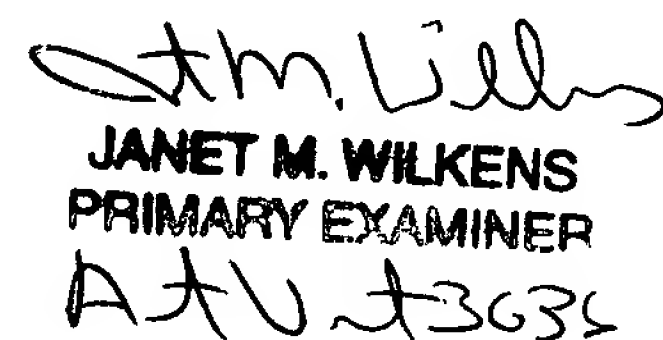 JANET M. WILKENS
PRIMARY EXAMINER
Art Unit 3636